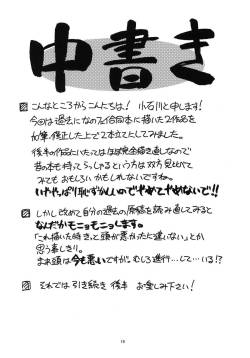 中書き
こんなところからこんにちは! 小石川と申します!
今回は過去になのフェイ合同本に描いた2作品を
加筆、修正した上で2本立てとしてみました。
後半の作品にいたってはほぼ完全描き直しなので
昔の本も持ってらっしゃるという方は双方見比べて
みてもおもしろいかもしれないですね。
いややっぱり恥ずかしいのでやめてやめないで!!
しかし改めて自分の過去の原稿を読み返してみると
なんだかモニョモニョします。
「これ描いた時きっと頭が悪かったに違いない」とか
思う事しきり。
まぁ頭は今も悪いですが。むしろ進行…して…いる!?
それでは引き続き後半 お楽しみ下さい!